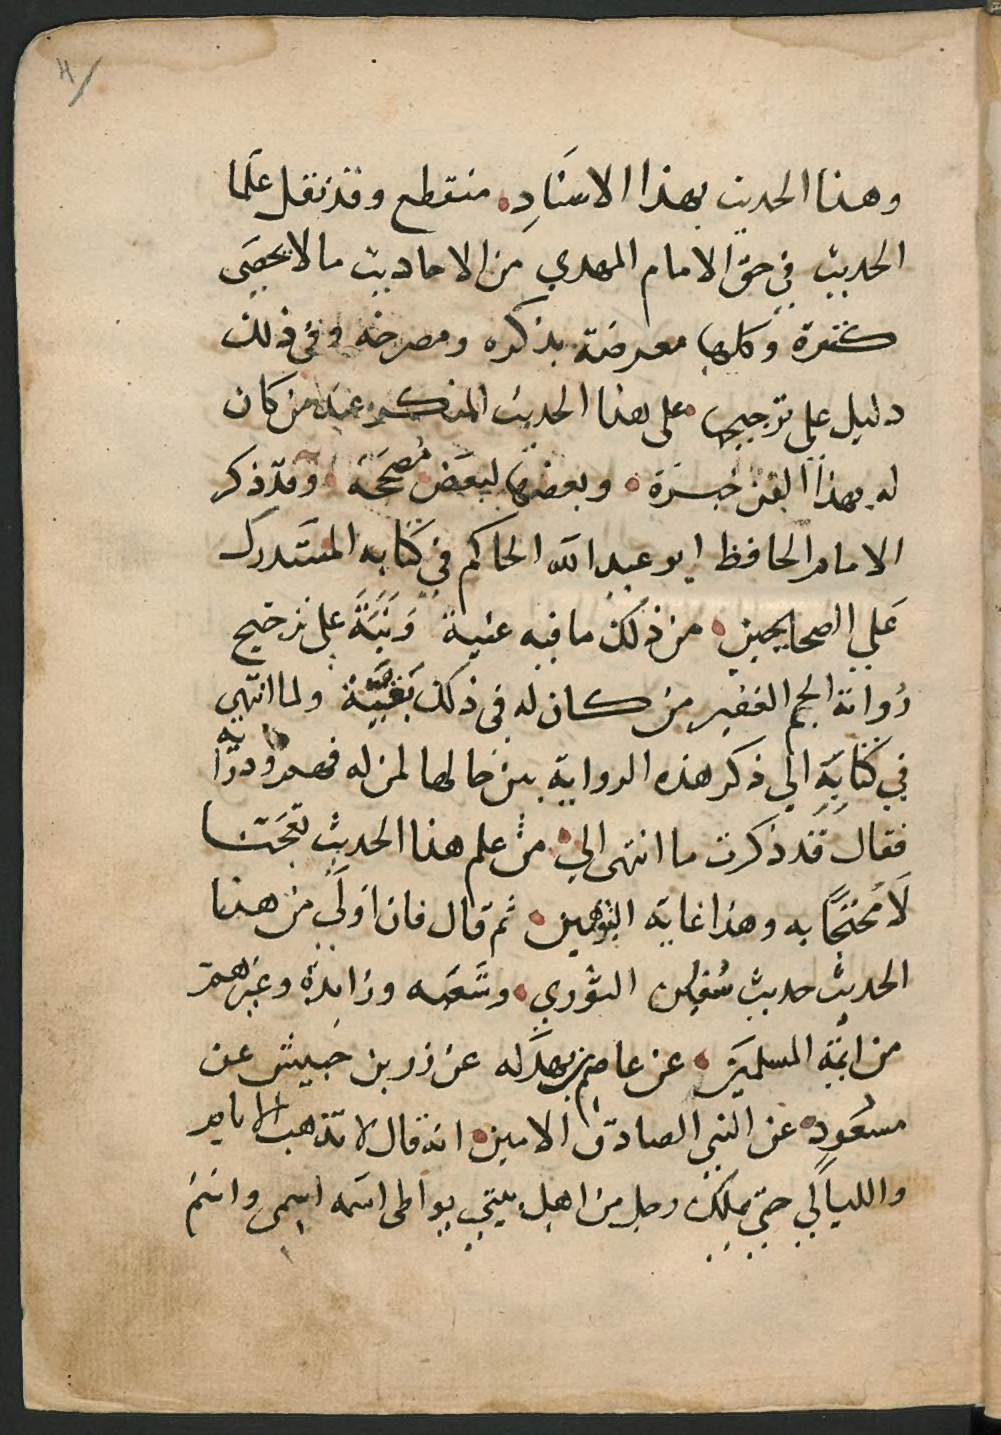 وهذا الحديث بهذا الاسنَادِ. منقطع وقد نقل علَما
الحديث في حق الامام المهدي من الاحاديث ما لا يحصَى
كثرة وكلها معرضة بذكره ومصرحة وفي ذلك
دليل على ترجيحها على هذا الحديث المنكر عند من كان
له بهذا الفن خبرة. وبعضها لبعض مُصححة. وقد ذكر
الامام الحافظ ابو عبد الله الحاكم في كتابه المستدرك
عَلي الصحيحين. من ذلك ما فيه غنية وَنبَّهَ على ترجيح
رُواته الجم الغفير من كان له في ذلك بغيّة ولما انتهي
في كتابِهِ الي ذكر هذه الرواية بين حالها لمن له فهم ودراية
فقال قد ذكرت ما انتهى الي. من علم هذا الحديث تعجبًا
لَا مُحتجًا به وهذا غاية التوهين. ثم قال فان اولَى من هذا
الحديث حديث سُفيٰن الثوري. وشعبه وزايدة وغيرهم
من ائمة المسلمين. عن عاصم بن بهدله عن زر بن حبيش عن
مسعود عن النبي الصادق الامين. انه قال لا تذهب الايام
والليالي حتي يملك رجل من اهل بيتي يواطى اسمه اسمى واسم